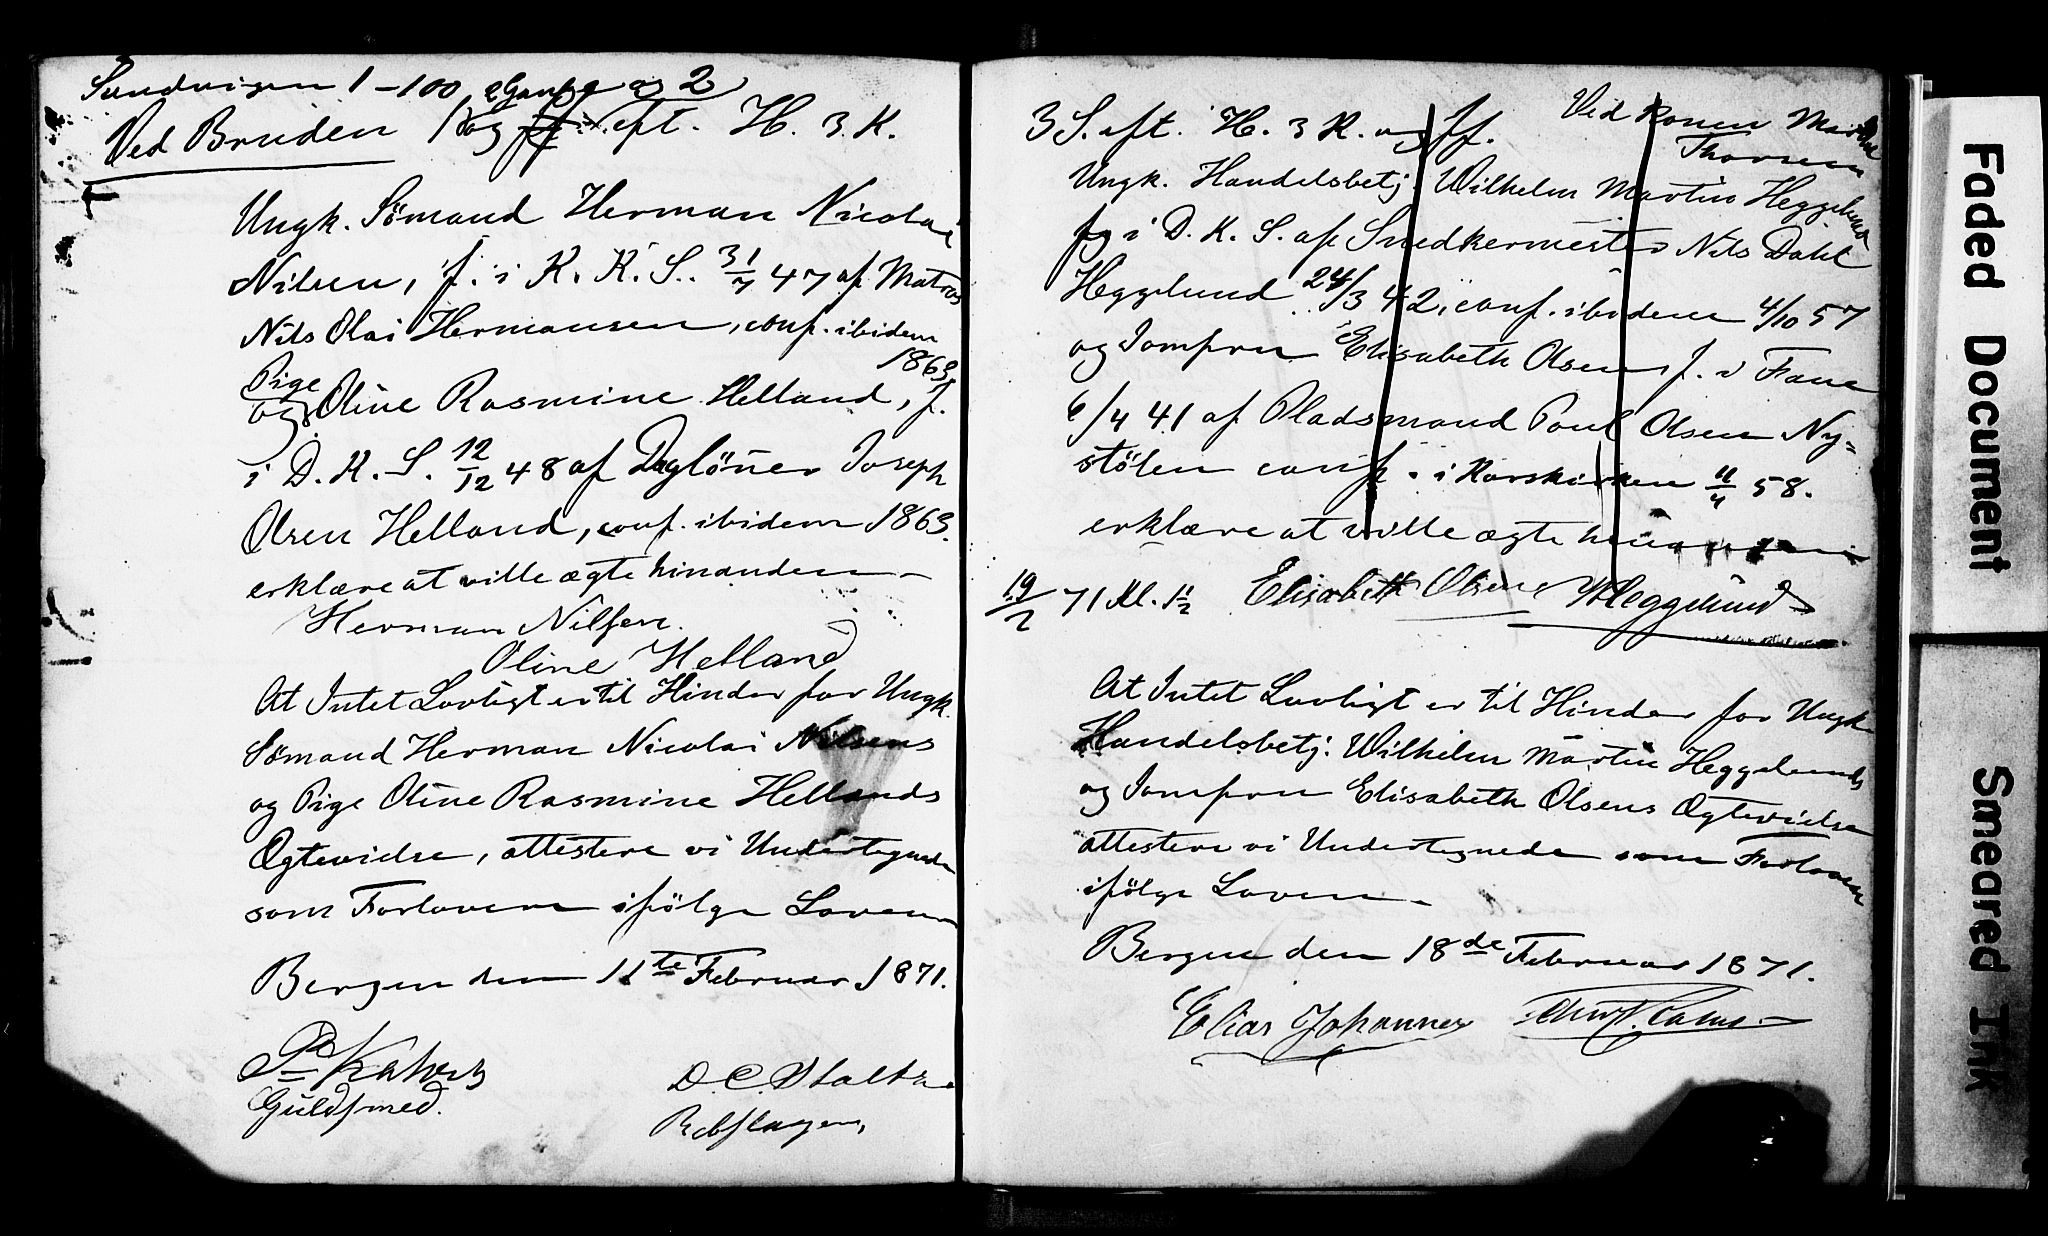 Sandvigen 1-100 2 Gange og 2
Ved Bruden og eft. H. 3 K.
Ungk. Sömand Herman Nicolai
Nilsen, f. i K. K. S. 31/7 47 af Matros
Nils Olai Hermansen, conf. ibidem
1863,
Pige
og Oline Rasmine Helland, f.
i D. K. S. 12/12 48 af Daglöner Joseph
Olsen Helland, conf. ibidem 1863.
erklære at ville ægte hinanden
Herman Nilsen.
Oline Helland
At Intet Lovligt er til Hinder for Ungk.
Sömand Herman Nicolai Nilsens
og Pige Oline Rasmine Hellands
Ægtevielse, attestere vi Undertegnede
som Forlovere ifölge Loven
Bergen den 11te Februar 1871.
Guldsmed.
D. C.
Rebslager,
3 S. eft. H. 3 K. og Ff.
Ved Konen Marthe
Thorsen
Ungk. Handelsbetj. Wilhelm Martin Heggelund
f i D. K. S. af Snedkermester Nils Dahl
Heggelund 24/3 42, conf. ibidem 4/10 57
og Jomfru Elisabeth Olsen f. i Fane
6/4 41 af Pladsmand Poul Olsen Ny=
stölen conf. i Korskirken 11/4 58.
erklære at ville ægte hinanden
19/2 71 Kl. 1½ Elisabeth Olsen WHeggelund
At Intet Lovligt er til Hinder for Ungk.
Handelsbetj. Wilhelm Martin Heggelunds
og Jomfru Elisabeth Olsens Ægtevielse
attestere vi Undertegnede som Forlovere
ifölge Loven.
Bergen den 18de Februar 1871.
Elias Johannes
Faded Document
Smeared Ink